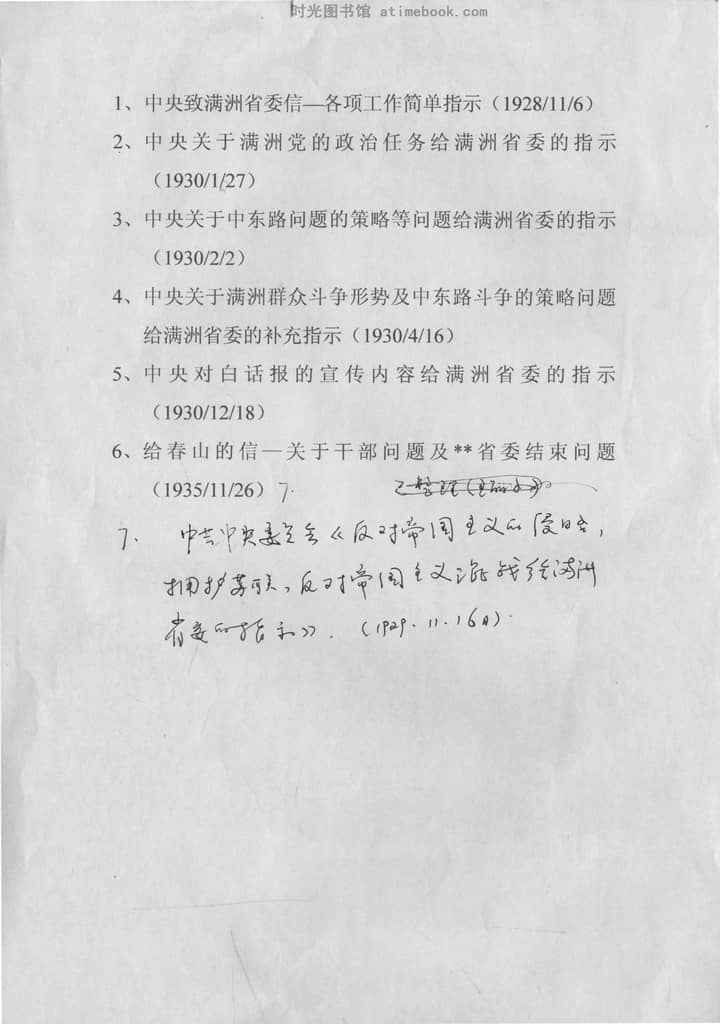 时光图书馆 atimebook.com
1、中央致满洲省委信—各项工作简单指示（1928/11/6）
2、中央关于满洲党的政治任务给满洲省委的指示
（1930/1/27）
3、中央关于中东路问题的策略等问题给满洲省委的指示
（1930/2/2）
4、中央关于满洲群众斗争形势及中东路斗争的策略问题
给满洲省委的补充指示（1930/4/16）
5、中央对白话报的宣传内容给满洲省委的指示
（1930/12/18）
6、给春山的信—关于干部问题及**省委结束问题
（1935/11/26） 7.
7. 中共中央委员会《反对帝国主义的侵略，
拥护苏联，反对帝国主义混战给满洲
省委的指示》. （1929.11.16日）.